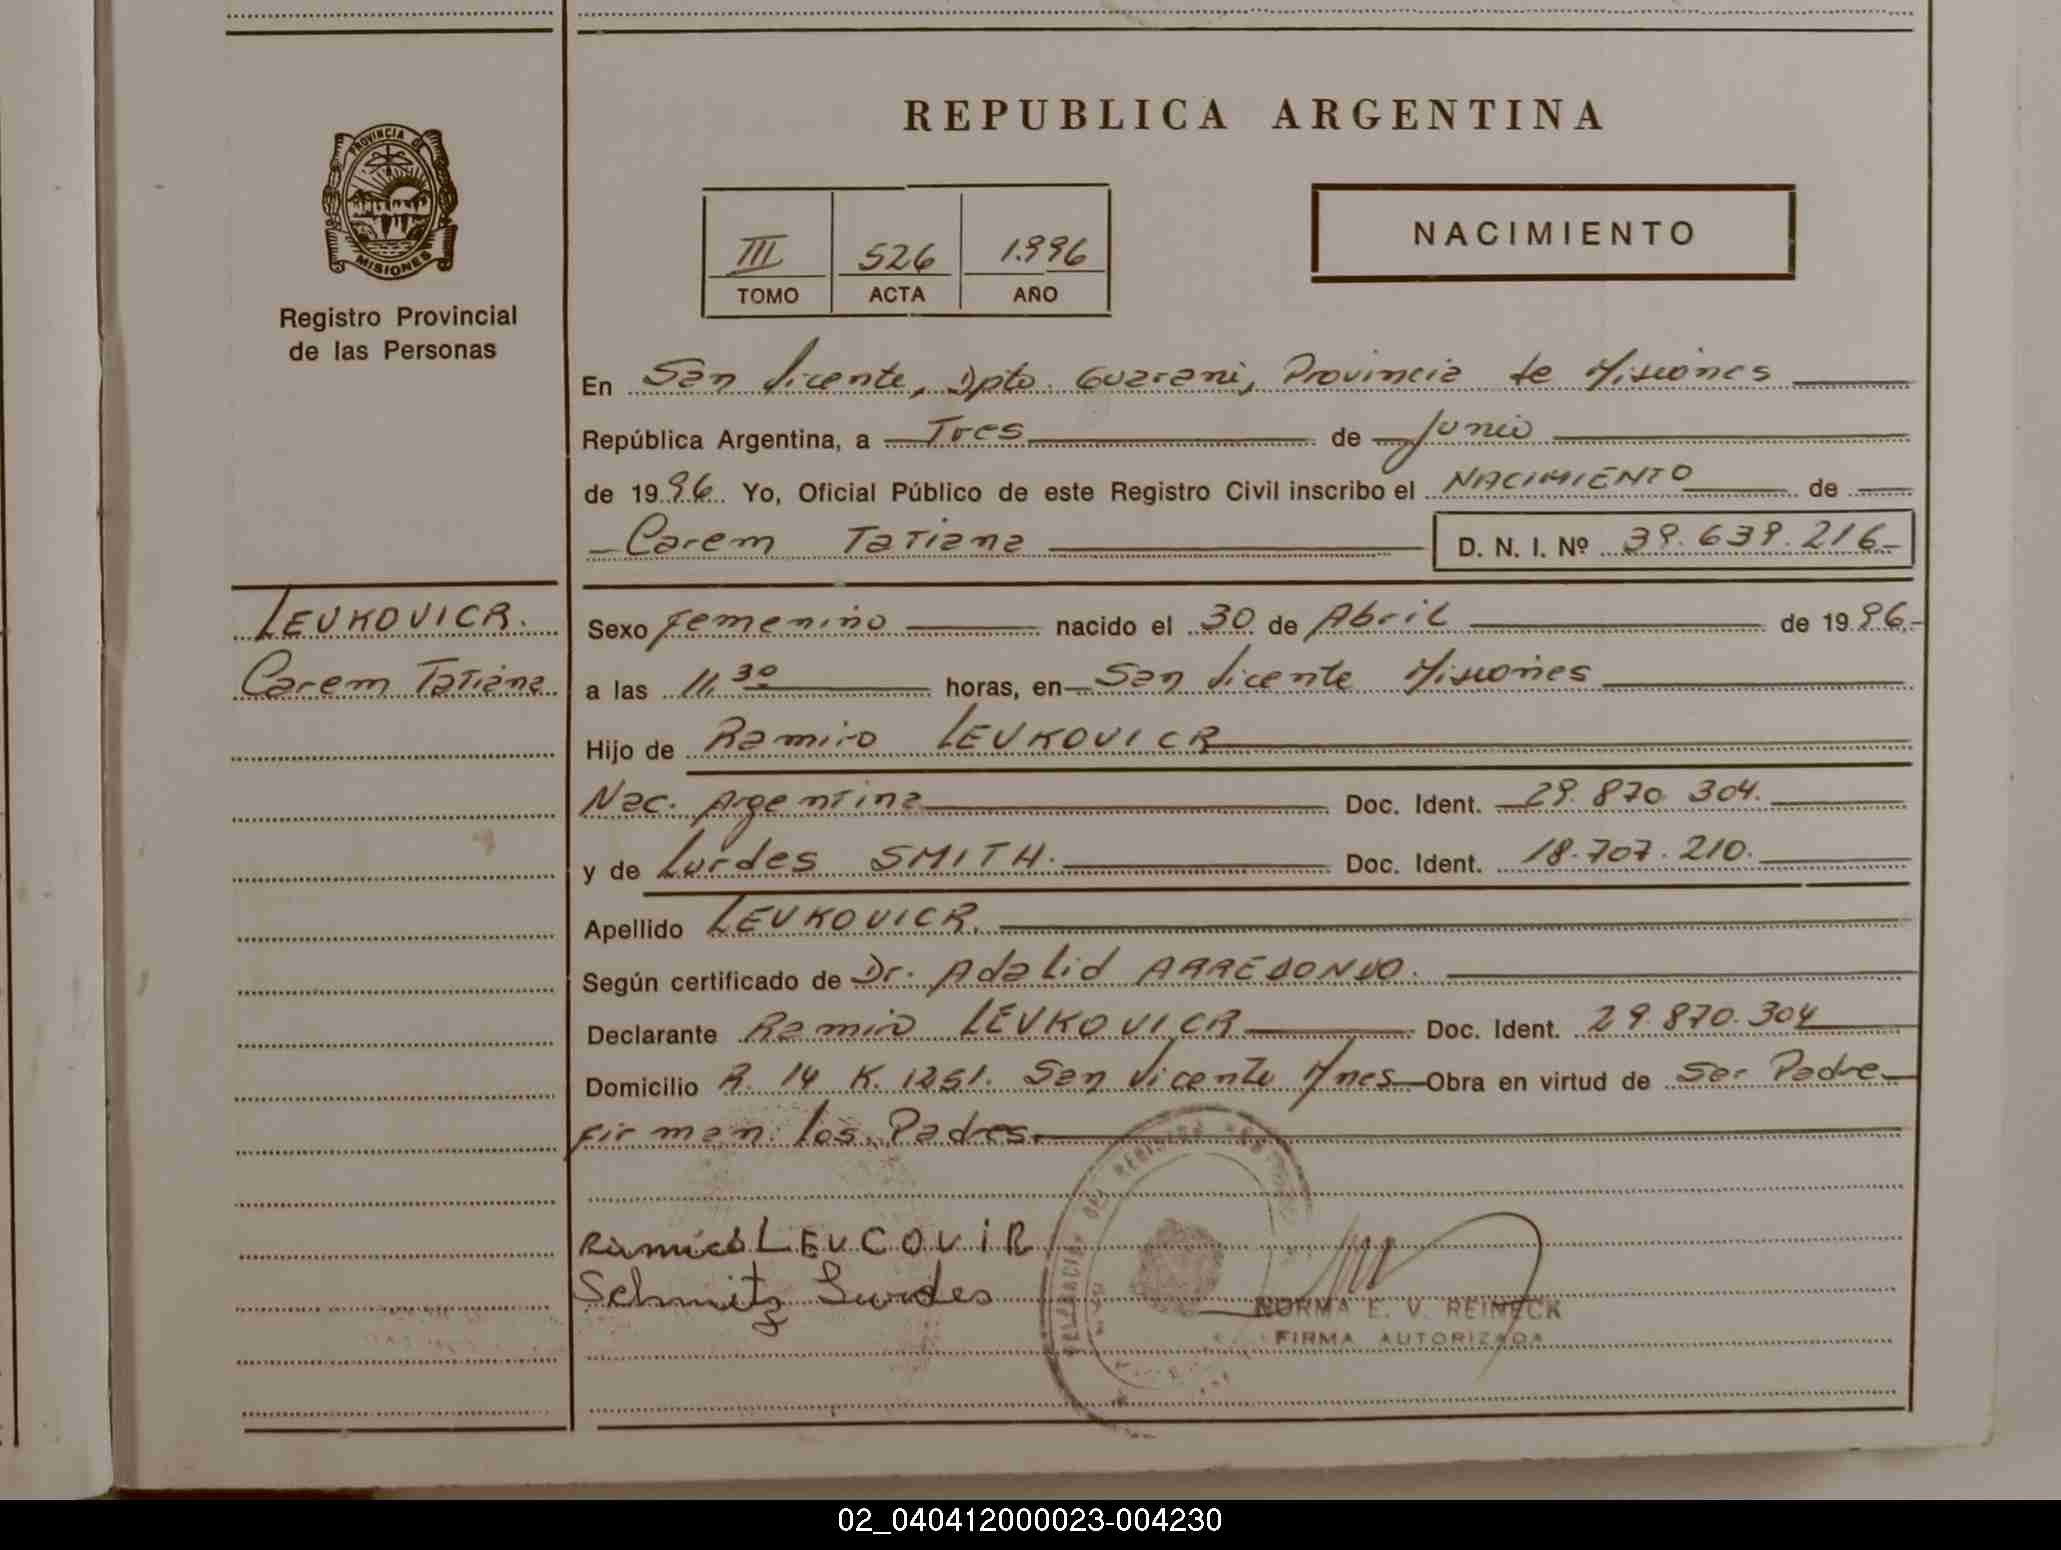 REPUBLICA ARGENTINA
PROVINCIA DE
MISIONES
Registro Provincial
de las Personas
III 526 1.996
TOMO ACTA AÑO
NACIMIENTO
En San Vicente, Dpto. Guarani, Provincia de Misiones
República Argentina, a Tres de Junio
de 1996 Yo, Oficial Público de este Registro Civil inscribo el NACIMIENTO de
Carem Tatiana D. N. I. Nº 39.639.216
LEVKOVICR.
Carem Tatiana
Sexo femenino nacido el 30 de Abril de 1996
a las 11.30 horas, en San Vicente Misiones
Hijo de Ramiro LEVKOVICR
Nac. Argentina Doc. Ident. 29.870 304.
y de Lurdes SMITH. Doc. Ident. 18.707.210.
Apellido LEVKOVICR.
Según certificado de Dr. Adalid ARREDONDO.
Declarante Ramiro LEVKOVICR Doc. Ident. 29.870.304
Domicilio R. 14 K. 1251. San Vicente Mnes Obra en virtud de Ser Padre
firman los Padres.
Ramiro LEVCOVIR
Schmitz Lurdes
NORMA E. V. REINECK
FIRMA AUTORIZADA
02_040412000023-004230